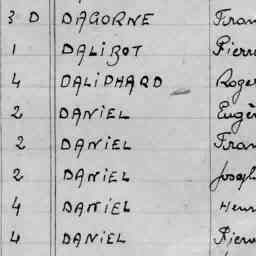 3 D DAGORNE Fran
1 DALIBOT Pierre
4 DALIPHARD Roger
2 DANIEL Eugè
2 DANIEL Fran
2 DANIEL Joseph
4 DANIEL Henr
4 DANIEL Pierr